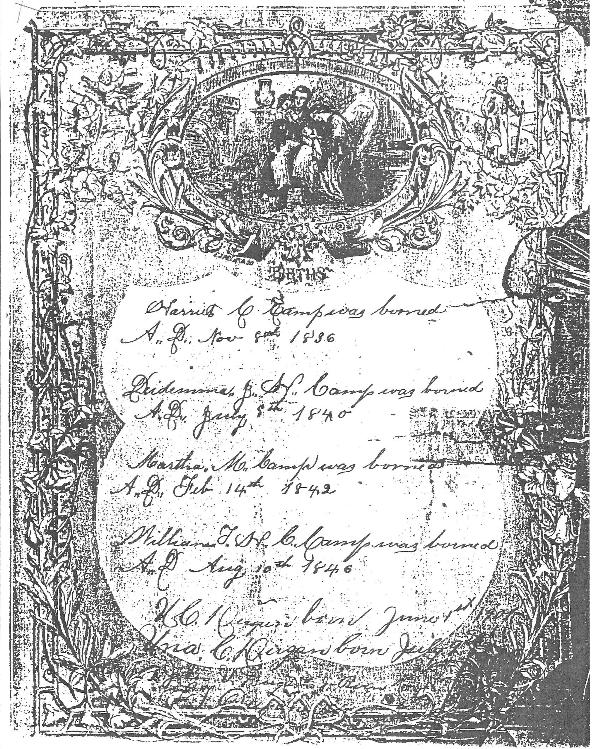 BIRTHS
Harriet C Camp was borned
A. D. Nov 8th 1836
J. N. Camp was borned
A. D. July 8th 1840
Martha. M. Camp was borned
A. D. Feb 14th 1842
William T. N. C. Camp was borned
A. D Aug 10th 1846
born June 1st
C. born July